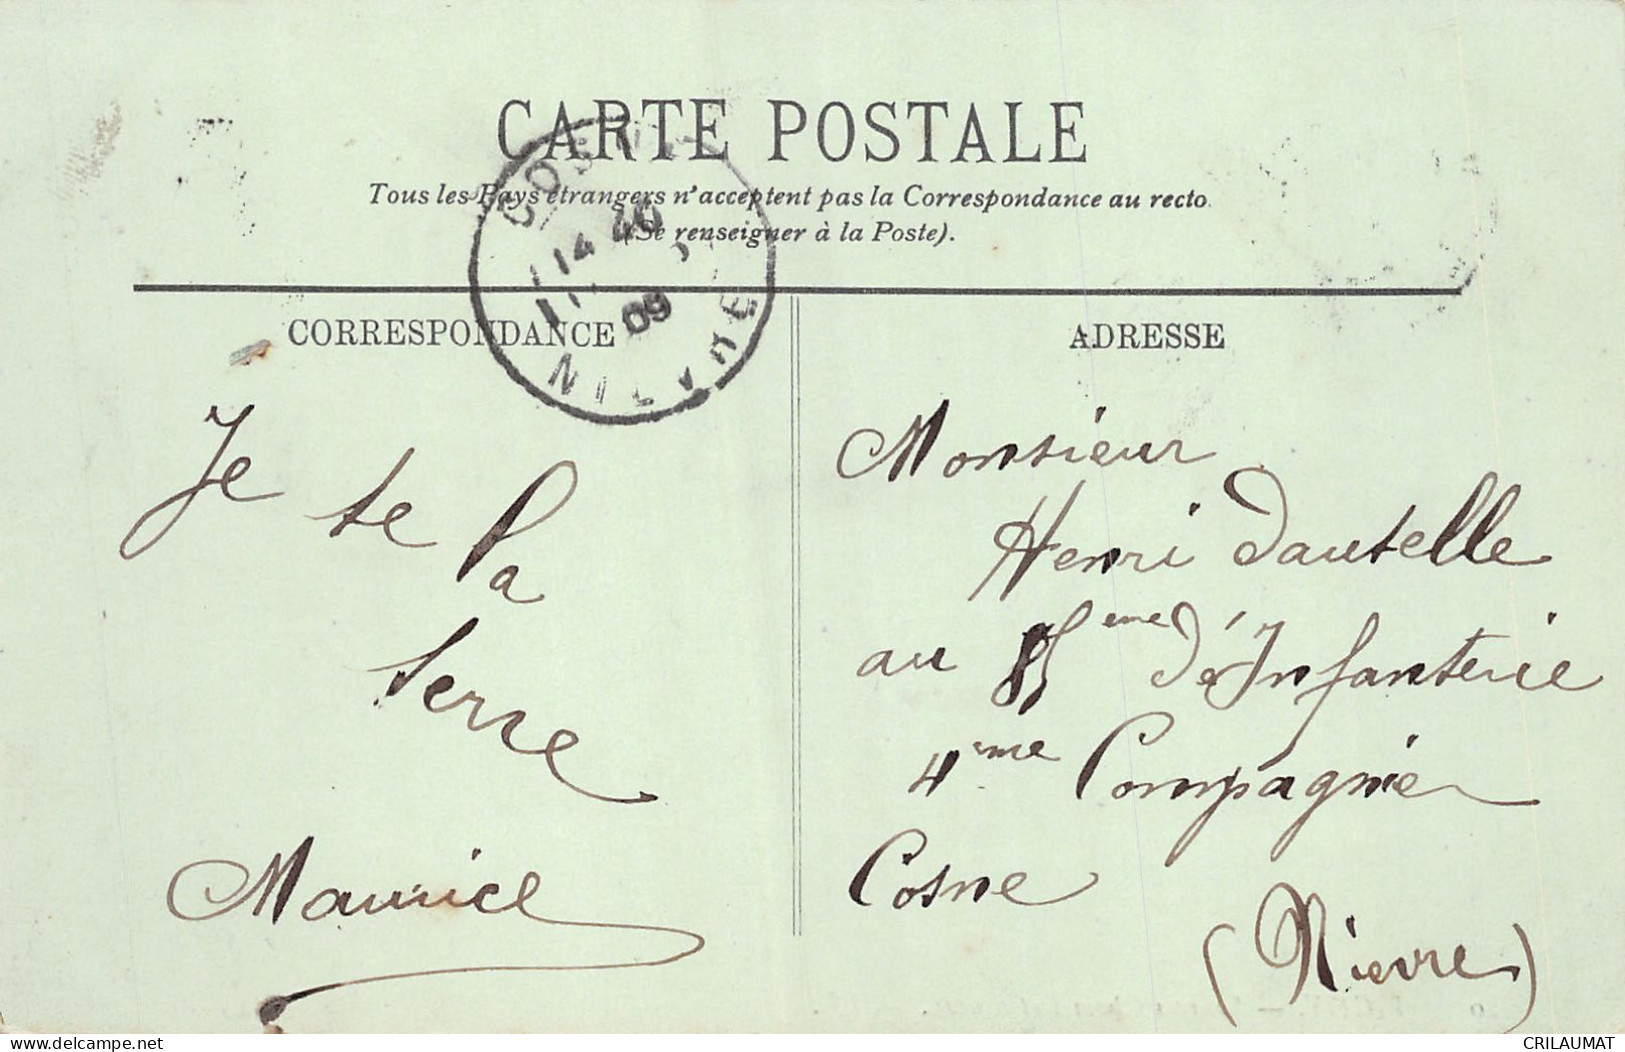 CARTE POSTALE
Tous les Pays étrangers n'acceptent pas la Correspondance au recto
(Se renseigner à la Poste).
COSNE
14 40
09
CORRESPONDANCE
ADRESSE
Je te la
serre
Maurice
Monsieur
Henri Dautelle
au 85eme d'Infanterie
4eme Compagnie
Cosne
(Nievre)
CRILAUMAT